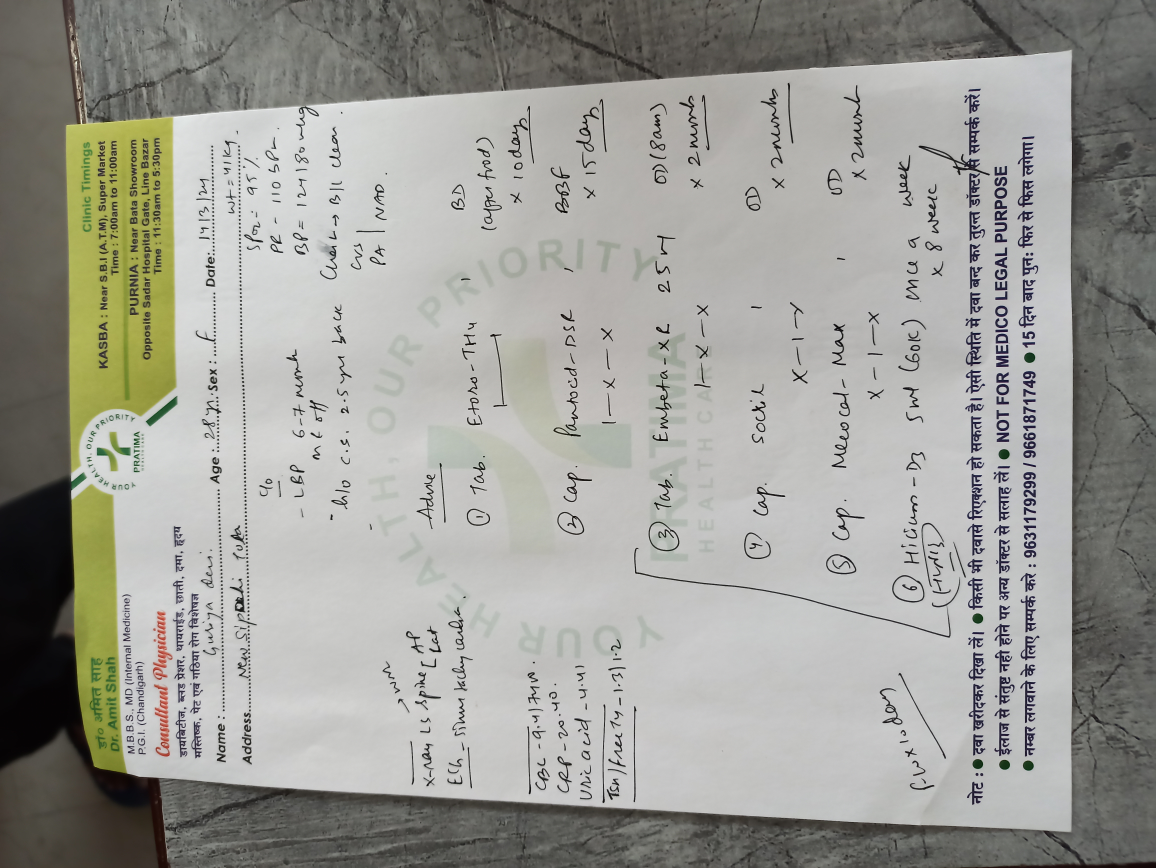 डा० अमित साह
Dr. Amit Shah
M.B.B.S., MD (Internal Medicine)
P.G.I. (Chandigarh)
Consultant Physician
डायबिटीज, ब्लड प्रेशर, थायराईड, छाती, दमा, हृदय
मस्तिष्क, पेट एवं गठिया रोग विशेषज्ञ
YOUR HEALTH, OUR PRIORITY
PRATIMA
Clinic Timings
KASBA : Near S.B.I (A.T.M), Super Market
Time : 7:00am to 11:00am
PURNIA : Near Bata Showroom
Opposite Sadar Hospital Gate, Line Bazar
Time : 11:30am to 5:30pm
Name : Guriya Devi. Age : 28yr. Sex : F Date: 14/3/24
Address New Sipahi Tola wt = 41kg.
SPO2 = 95%
PR = 110 bpm
BP = 124/80 mmHg
Chest → B/L clear.
CVS
PA | NAD.
c/o
- LBP 6-7 month
on & off
- h/o C.S. 2.5 yr back
X-ray LS Spine AP Lat → WNL
ECG - Sinus tachycardia.
CBC - 9.4/
CRP - 20.40.
Uric acid - 4.41
TSH/Free T4 - 1.31/1.2
Advise
① Tab. Etoro-TH4 1 BD
(after food)
x 10 days
② Cap. Pantocid-DSR 1 BBF
1-x-x x 15 days
③ Tab. Embeta-XR 25 OD (8am)
1-x-x x 2 month
④ Cap. 1 OD
x-1-x x 2 months
⑤ Cap. Mecocal-Max 1 OD
x-1-x x 2 month
⑥ D3 5ml (60K) once a week
x 8 week
YOUR HEALTH, OUR PRIORITY
PRATIMA
HEALTH CARE
x 10 day
नोट : ● दवा खरीदकर दिखा लें। ● किसी भी दवासे रिएक्शन हो सकता है। ऐसी स्थिति में दवा बन्द कर तुरन्त डॉक्टर से सम्पर्क करें।
● ईलाज से संतुष्ट नही होने पर अन्य डॉक्टर से सलाह लें। ● NOT FOR MEDICO LEGAL PURPOSE
● नम्बर लगवाने के लिए सम्पर्क करे : 9631179299 / 9661871749 ● 15 दिन बाद पुन: फिर से फिस लगेगा।